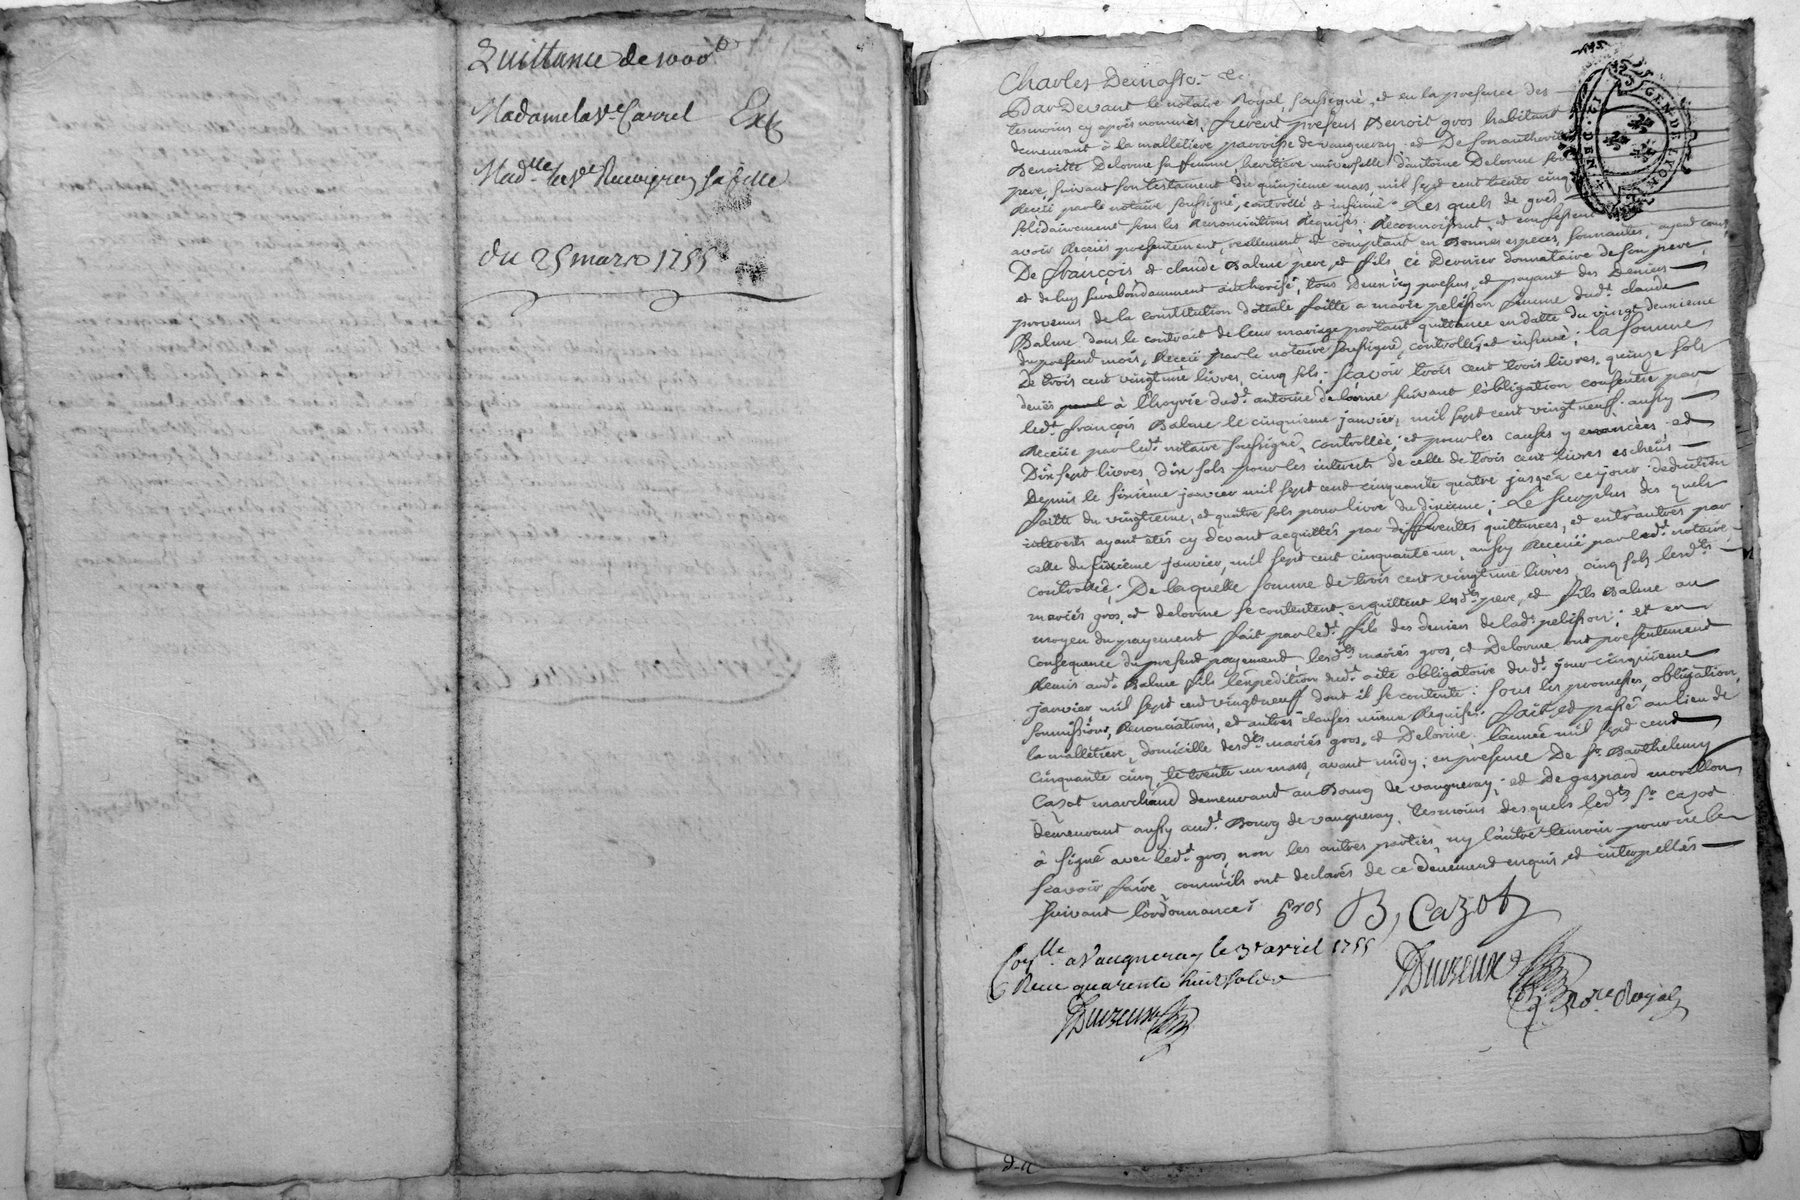 Quittance de 1000lt
Madame la Ve Carrel Exp
Madlle la Ve Ravignon sa fille
du 25 mars 1755
GEN. DE LYON
Charles Demasso &c
Par Devant le notaire Royal, soussigné, et en la presence des
temoins cy aprés nommés, furent presens Benoit gros habitant
demeurant à la malletiere parroisse de vaugneray, et De son authorité
Benoitte Delorme sa femme, heritiere universelle d'antoine Delorme son
pere, suivant son testament du quinzieme mars mil sept cent trente cinq
Receü par le notaire soussigné, controllé et insinué. Les quels de grés
solidairement sous les Renonciations Requises, Reconnoissent, et confessent
avoir Receus presentement, reellement et comptant en Bonnes especes, sonnantes, ayant cours
De françois et claude Balme pere, et fils ce Dernier donnataire de son pere,
et de luy surabondamment authorisé, tous Deux icy presens, et payant des Deniers
provenus, de la constitution dottale faitte a marie pelisson femme dudt. claude
Balme dans le contract de leur mariage portant quittance en datte du vingt deuxieme
du present mois, Receü par le notaire soussigné, controllé, et insinué; la somme
De trois cent vingt une livres, cinq sols; sçavoir trois cent trois livres, quinze sols
deües à l'hoyrie dudt. antoine delorme suivant l'obligation consentie par
ledt. françois Balme le cinquieme janvier, mil sept cent vingt neuf aussy
Receüe par ledt. notaire soussigné, controllée; et pour les causes y enoncées. et
Dix sept livres, dix sols pour les interets de celle de trois cent livres escheüs
Depuis le sixieme janvier mil sept cent cinquante quatre jusqu'a ce jour; deduction
faitte du vingtieme, et quatre sols pour livre du dixieme; Le surplus des quels
interets ayant étés cy devant acquittés par differentes quittances, et entr'autres par
celle du sixieme janvier, mil sept cent cinquante un, aussy Receüe par ledt. notaire
controllée; De laquelle somme de trois cent vingt une livres, cinq sols lesdts
mariés gros, et delorme se contentent, en quittent lesdts pere, et fils Balme au
moyen du payement fait par ledt. fils des deniers de lad. pelisson; et en
consequence du present payement, lesdts mariés gros, et Delorme ont presentement
Remis audt. Balme fils l'expedition dudt. acte obligatoire dudt. jour cinquieme
janvier mil sept cent vingt neuf dont il se contente: sous les promesses, obligation,
soumissions, Renonciations, et autres clauses mieux Requises. fait et passé au lieu de
la malletiere, domicille desdts mariés gros, et Delorme; l'année mil sept cent
cinquante cinq, le trente un mars, avant midy; en presence De sr. Barthelemy
Cazot marchand demeurant au Bourg de vaugneray; et De gaspard morellon
demeurant aussy audt. Bourg de vaugneray, temoins desquels ledt. sr. cazot
à signé avec ledt. gros, non les autres parties, ny l'autre temoin pour ne le
sçavoir faire, comm'ils ont declarés de ce deuement enquis, et interpellés
suivant l'ordonnance; gros B, Cazot
Conlle a Vaugneray le 3e avril 1755
Receu quarente huit sols
Duvzeux Nore. Royal
Duvzeux